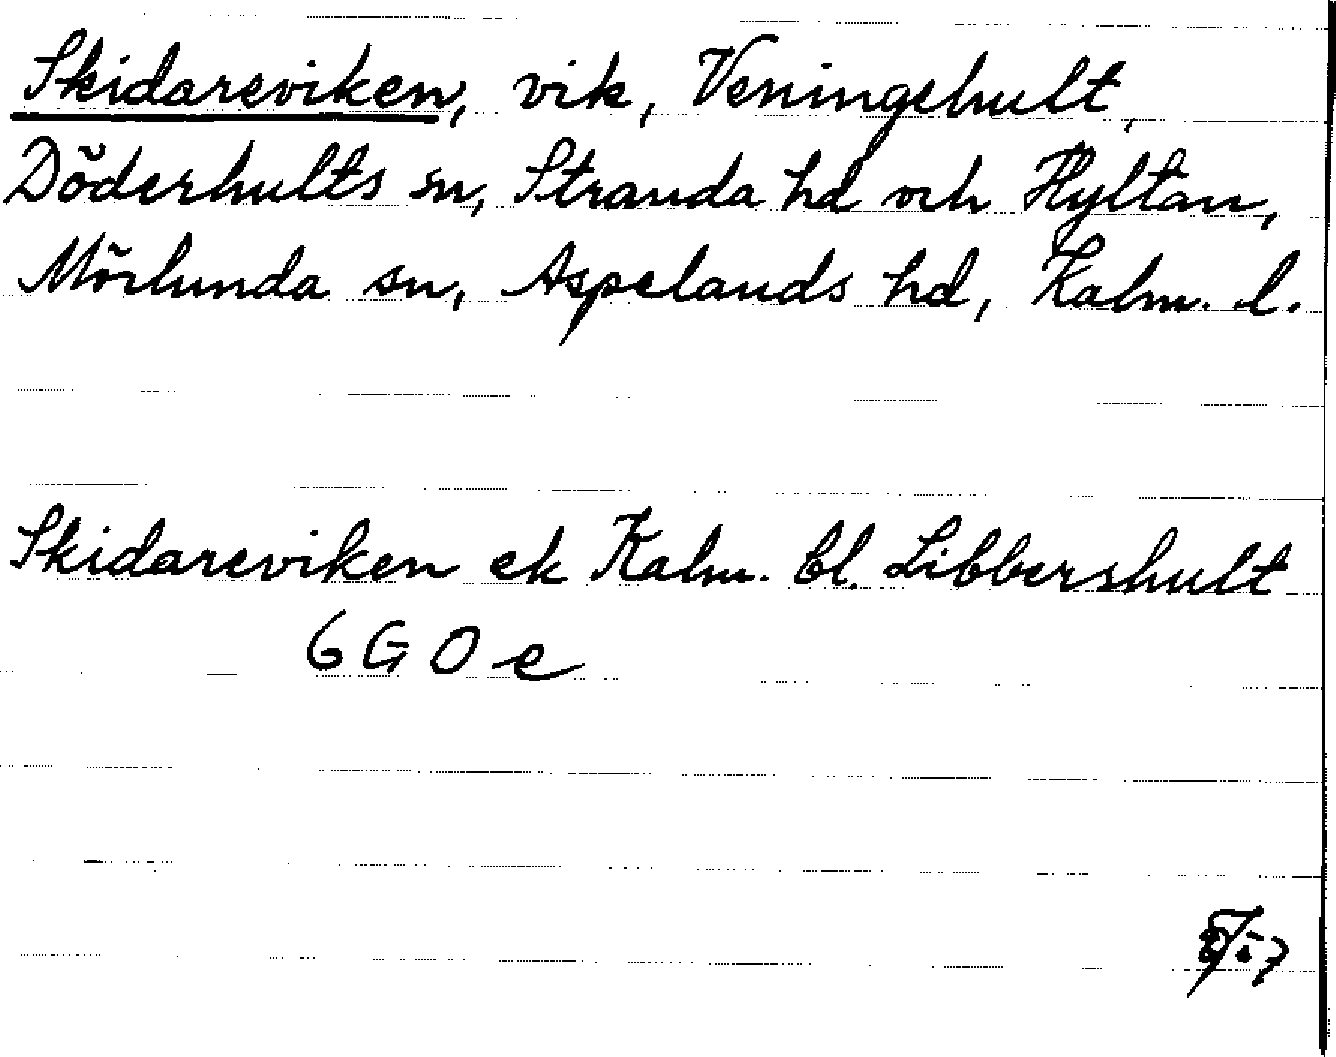 Skidareviken, vik, Veningehult,
Döderhults sn, Stranda hd och Hyltan,
Mörlunda sn, Aspelands hd, Kalm. l.
Skidareviken ek Kalm. bl. Libbershult
6 G O e